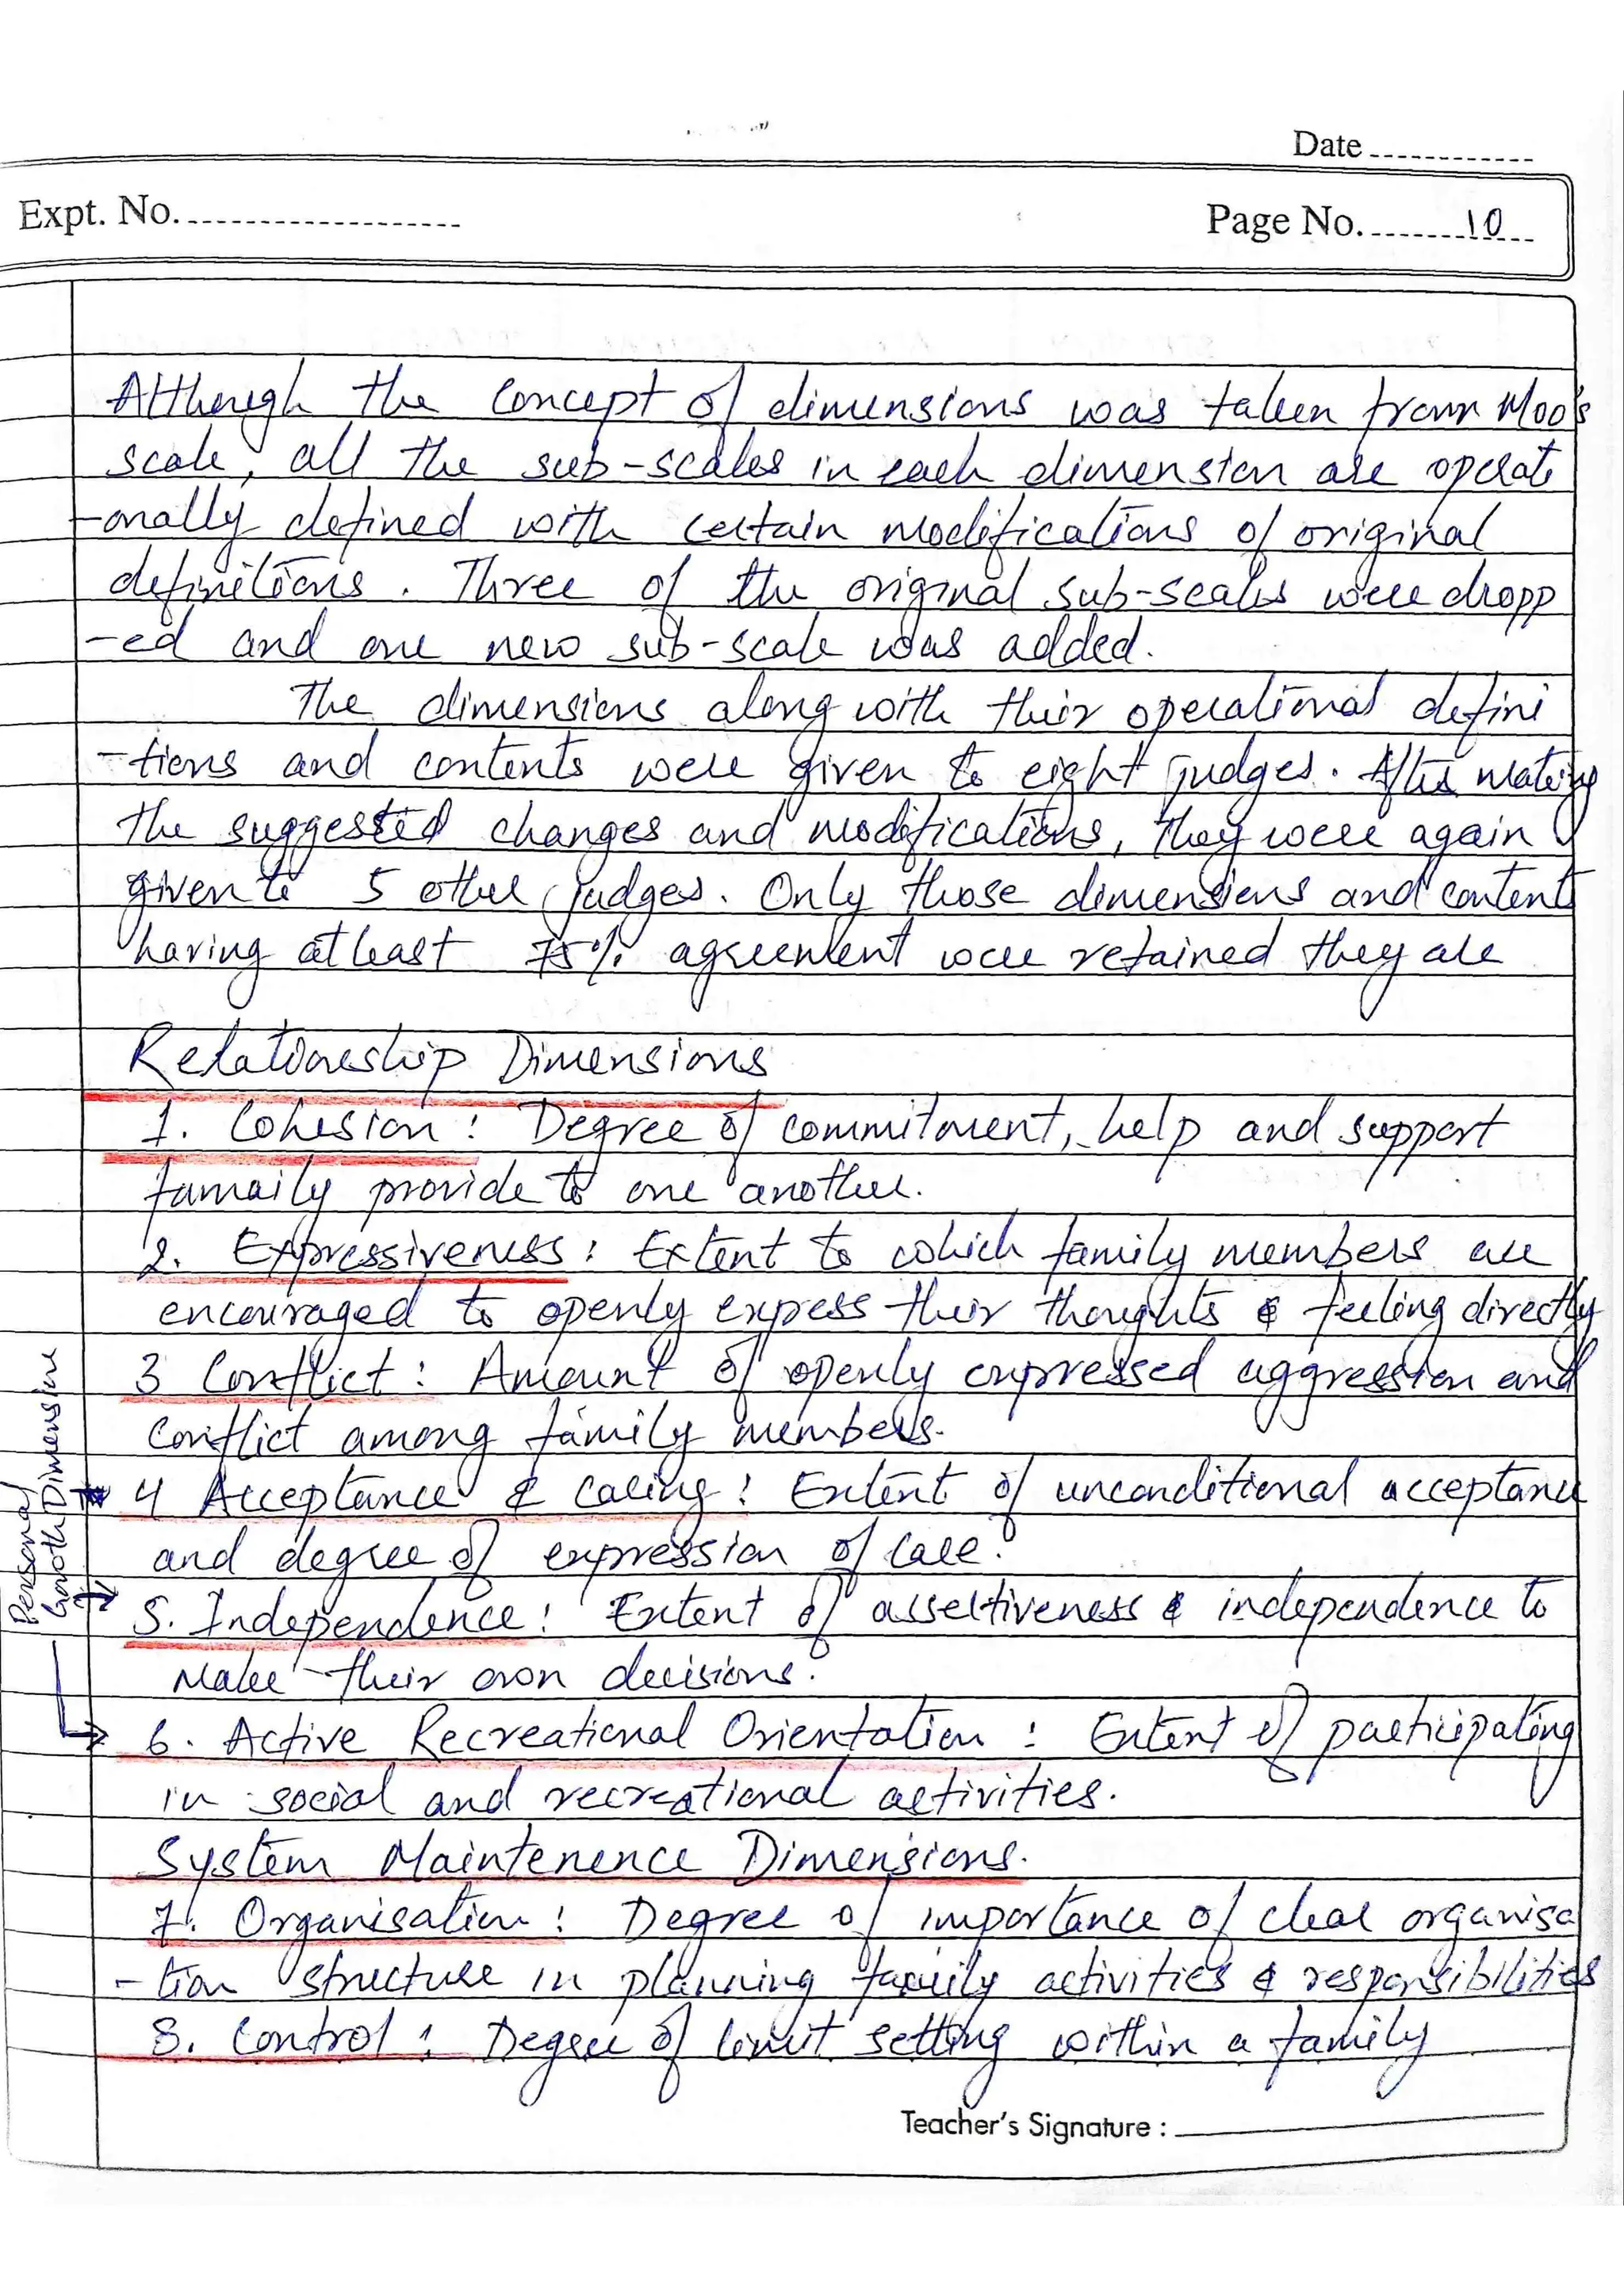 Date
Expt. No.
Page No. 10
Although the concept of dimensions was taken from Moo's
scale, all the sub-scales in each dimension are operati
-onally defined with certain modifications of original
definitions. Three of the original sub-scales were dropp
-ed and one new sub-scale was added.
The dimensions along with their operational defini
-tions and contents were given to eight judges. After making
the suggested changes and modifications, they were again
given to 5 other judges. Only those dimensions and contents
having atleast 75% agreement were retained they are
Relationship Dimensions
1. Cohesion : Degree of commitment, help and support
famaily provide to one another.
2. Expressiveness : Extent to which family members are
encouraged to openly express their thoughts & feeling directly
3 Conflict : Amount of openly expressed aggression and
conflict among family members.
Personal
Growth Dimensions
4 Acceptance & Caring : Extent of unconditional acceptance
and degree of expression of care.
5. Independence : Extent of assertiveness & independence to
make their own decisions.
6. Active Recreational Orientation : Extent of participating
in social and recreational activities.
System Maintenence Dimensions.
7. Organisation : Degree of importance of clear organisa
-tion structure in planning family activities & responsibilities
8. Control : Degree of limit setting within a family
Teacher's Signature :